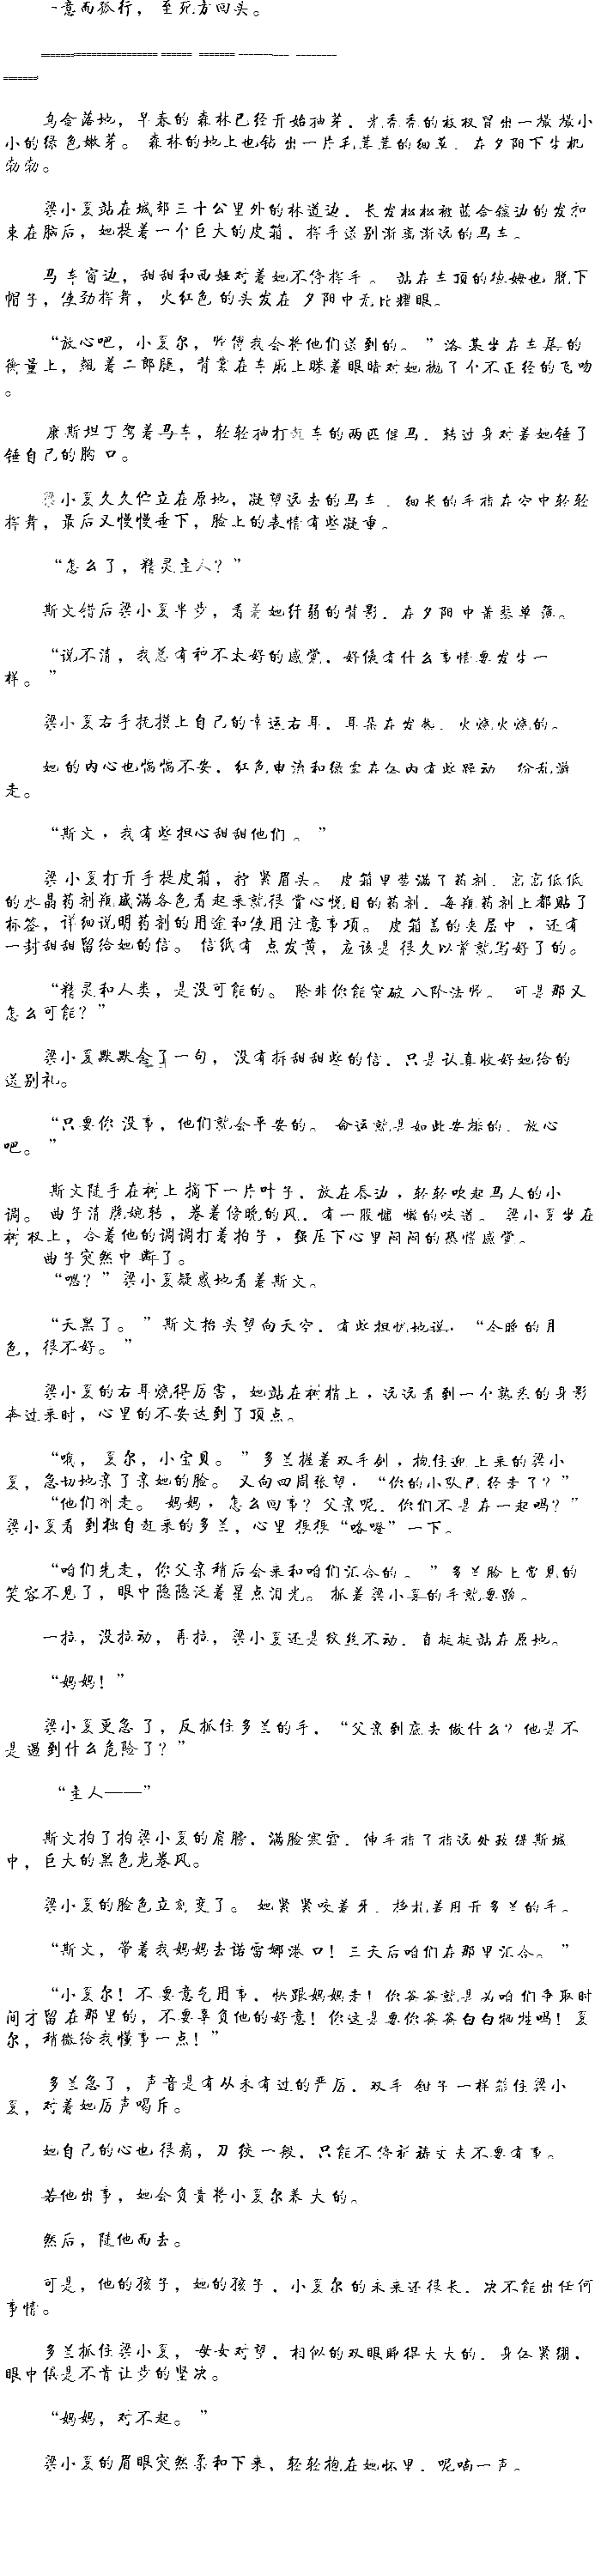 一意而孤行，至死方回头。
乌金落地，早春的森林已经开始抽芽，光秃秃的枝杈冒出一撮撮小
小的绿色嫩芽。森林的地上也钻出一片毛茸茸的细草，在夕阳下生机
勃勃。
梁小夏站在城郊三十公里外的林道边，长发松松被蓝金镶边的发扣
束在脑后，她提着一个巨大的皮箱，挥手送别渐离渐远的马车。
马车窗边，甜甜和西娅对着她不停挥手。站在车顶的德姆也脱下
帽子，使劲挥舞，火红色的头发在夕阳中无比耀眼。
“放心吧，小夏尔，师傅我会将他们送到的。”洛基坐在车尾的
衡量上，翘着二郎腿，背靠在车厢上眯着眼睛对她抛了个不正经的飞吻
。
康斯坦丁驾着马车，轻轻抽打拉车的两匹健马，转过身对着她锤了
锤自己的胸口。
梁小夏久久伫立在原地，凝望远去的马车，细长的手指在空中轻轻
挥舞，最后又慢慢垂下，脸上的表情有些凝重。
“怎么了，精灵主人？”
斯文错后梁小夏半步，看着她纤弱的背影，在夕阳中萧瑟单薄。
“说不清，我总有种不太好的感觉，好像有什么事情要发生一
样。”
梁小夏右手抚摸上自己的幸运右耳，耳朵在发热，火烧火烧的。
她的内心也惴惴不安，红色电流和绿雾在体内有些躁动，纷乱游
走。
“斯文，我有些担心甜甜他们。”
梁小夏打开手提皮箱，拧紧眉头。皮箱里装满了药剂，高高低低
的水晶药剂瓶盛满各色看起来就很赏心悦目的药剂，每瓶药剂上都贴了
标签，详细说明药剂的用途和使用注意事项。皮箱盖的夹层中，还有
一封甜甜留给她的信。信纸有点发黄，应该是很久以前就写好了的。
“精灵和人类，是没可能的。除非你能突破八阶法师。可是那又
怎么可能？”
梁小夏默默念了一句，没有拆甜甜些的信，只是认真收好她给的
送别礼。
“只要你没事，他们就会平安的。命运就是如此安排的，放心
吧。”
斯文随手在树上摘下一片叶子，放在唇边，轻轻吹起马人的小
调。曲子清脆婉转，卷着傍晚的风，有一股慵懒的味道。梁小夏坐在
树杈上，合着他的调调打着拍子，强压下心里闷闷的恐慌感觉。
曲子突然中断了。
“嗯？”梁小夏疑惑地看着斯文。
“天黑了。”斯文抬头望向天空，有些担忧地说，“今晚的月
色，很不好。”
梁小夏的右耳烧得厉害，她站在树梢上，远远看到一个熟悉的身影
奔过来时，心里的不安达到了顶点。
“哦，夏尔，小宝贝。”多兰握着双手剑，抱住迎上来的梁小
夏，急切地亲了亲她的脸。又向四周张望，“你的小队已经走了？”
“他们刚走。妈妈，怎么回事？父亲呢，你们不是在一起吗？”
梁小夏看到独自赶来的多兰，心里狠狠“咯噔”一下。
“咱们先走，你父亲稍后会来和咱们汇合的。”多兰脸上常见的
笑容不见了，眼中隐隐泛着星点泪光。抓着梁小夏的手就要跑。
一拉，没拉动，再拉，梁小夏还是纹丝不动，直挺挺站在原地。
“妈妈！”
梁小夏更急了，反抓住多兰的手，“父亲到底去做什么？他是不
是遇到什么危险了？”
“主人——”
斯文拍了拍梁小夏的肩膀，满脸寒霜，伸手指了指远处孜得斯城
中，巨大的黑色龙卷风。
梁小夏的脸色立刻变了。她紧紧咬着牙，挣扎着甩开多兰的手。
“斯文，带着我妈妈去诺雷娜港口！三天后咱们在那里汇合。”
“小夏尔！不要意气用事，快跟妈妈走！你爸爸就是为咱们争取时
间才留在那里的，不要辜负他的好意！你这是要你爸爸白白牺牲吗！夏
尔，稍微给我懂事一点！”
多兰急了，声音是有从未有过的严厉，双手钳子一样箍住梁小
夏，对着她厉声喝斥。
她自己的心也很痛，刀绞一般，只能不停祈祷丈夫不要有事。
若他出事，她会负责将小夏尔养大的。
然后，随他而去。
可是，他的孩子，她的孩子，小夏尔的未来还很长，决不能出任何
事情。
多兰抓住梁小夏，母女对望，相似的双眼睁得大大的，身体紧绷，
眼中俱是不肯让步的坚决。
“妈妈，对不起。”
梁小夏的眉眼突然柔和下来，轻轻抱在她怀里，呢喃一声。